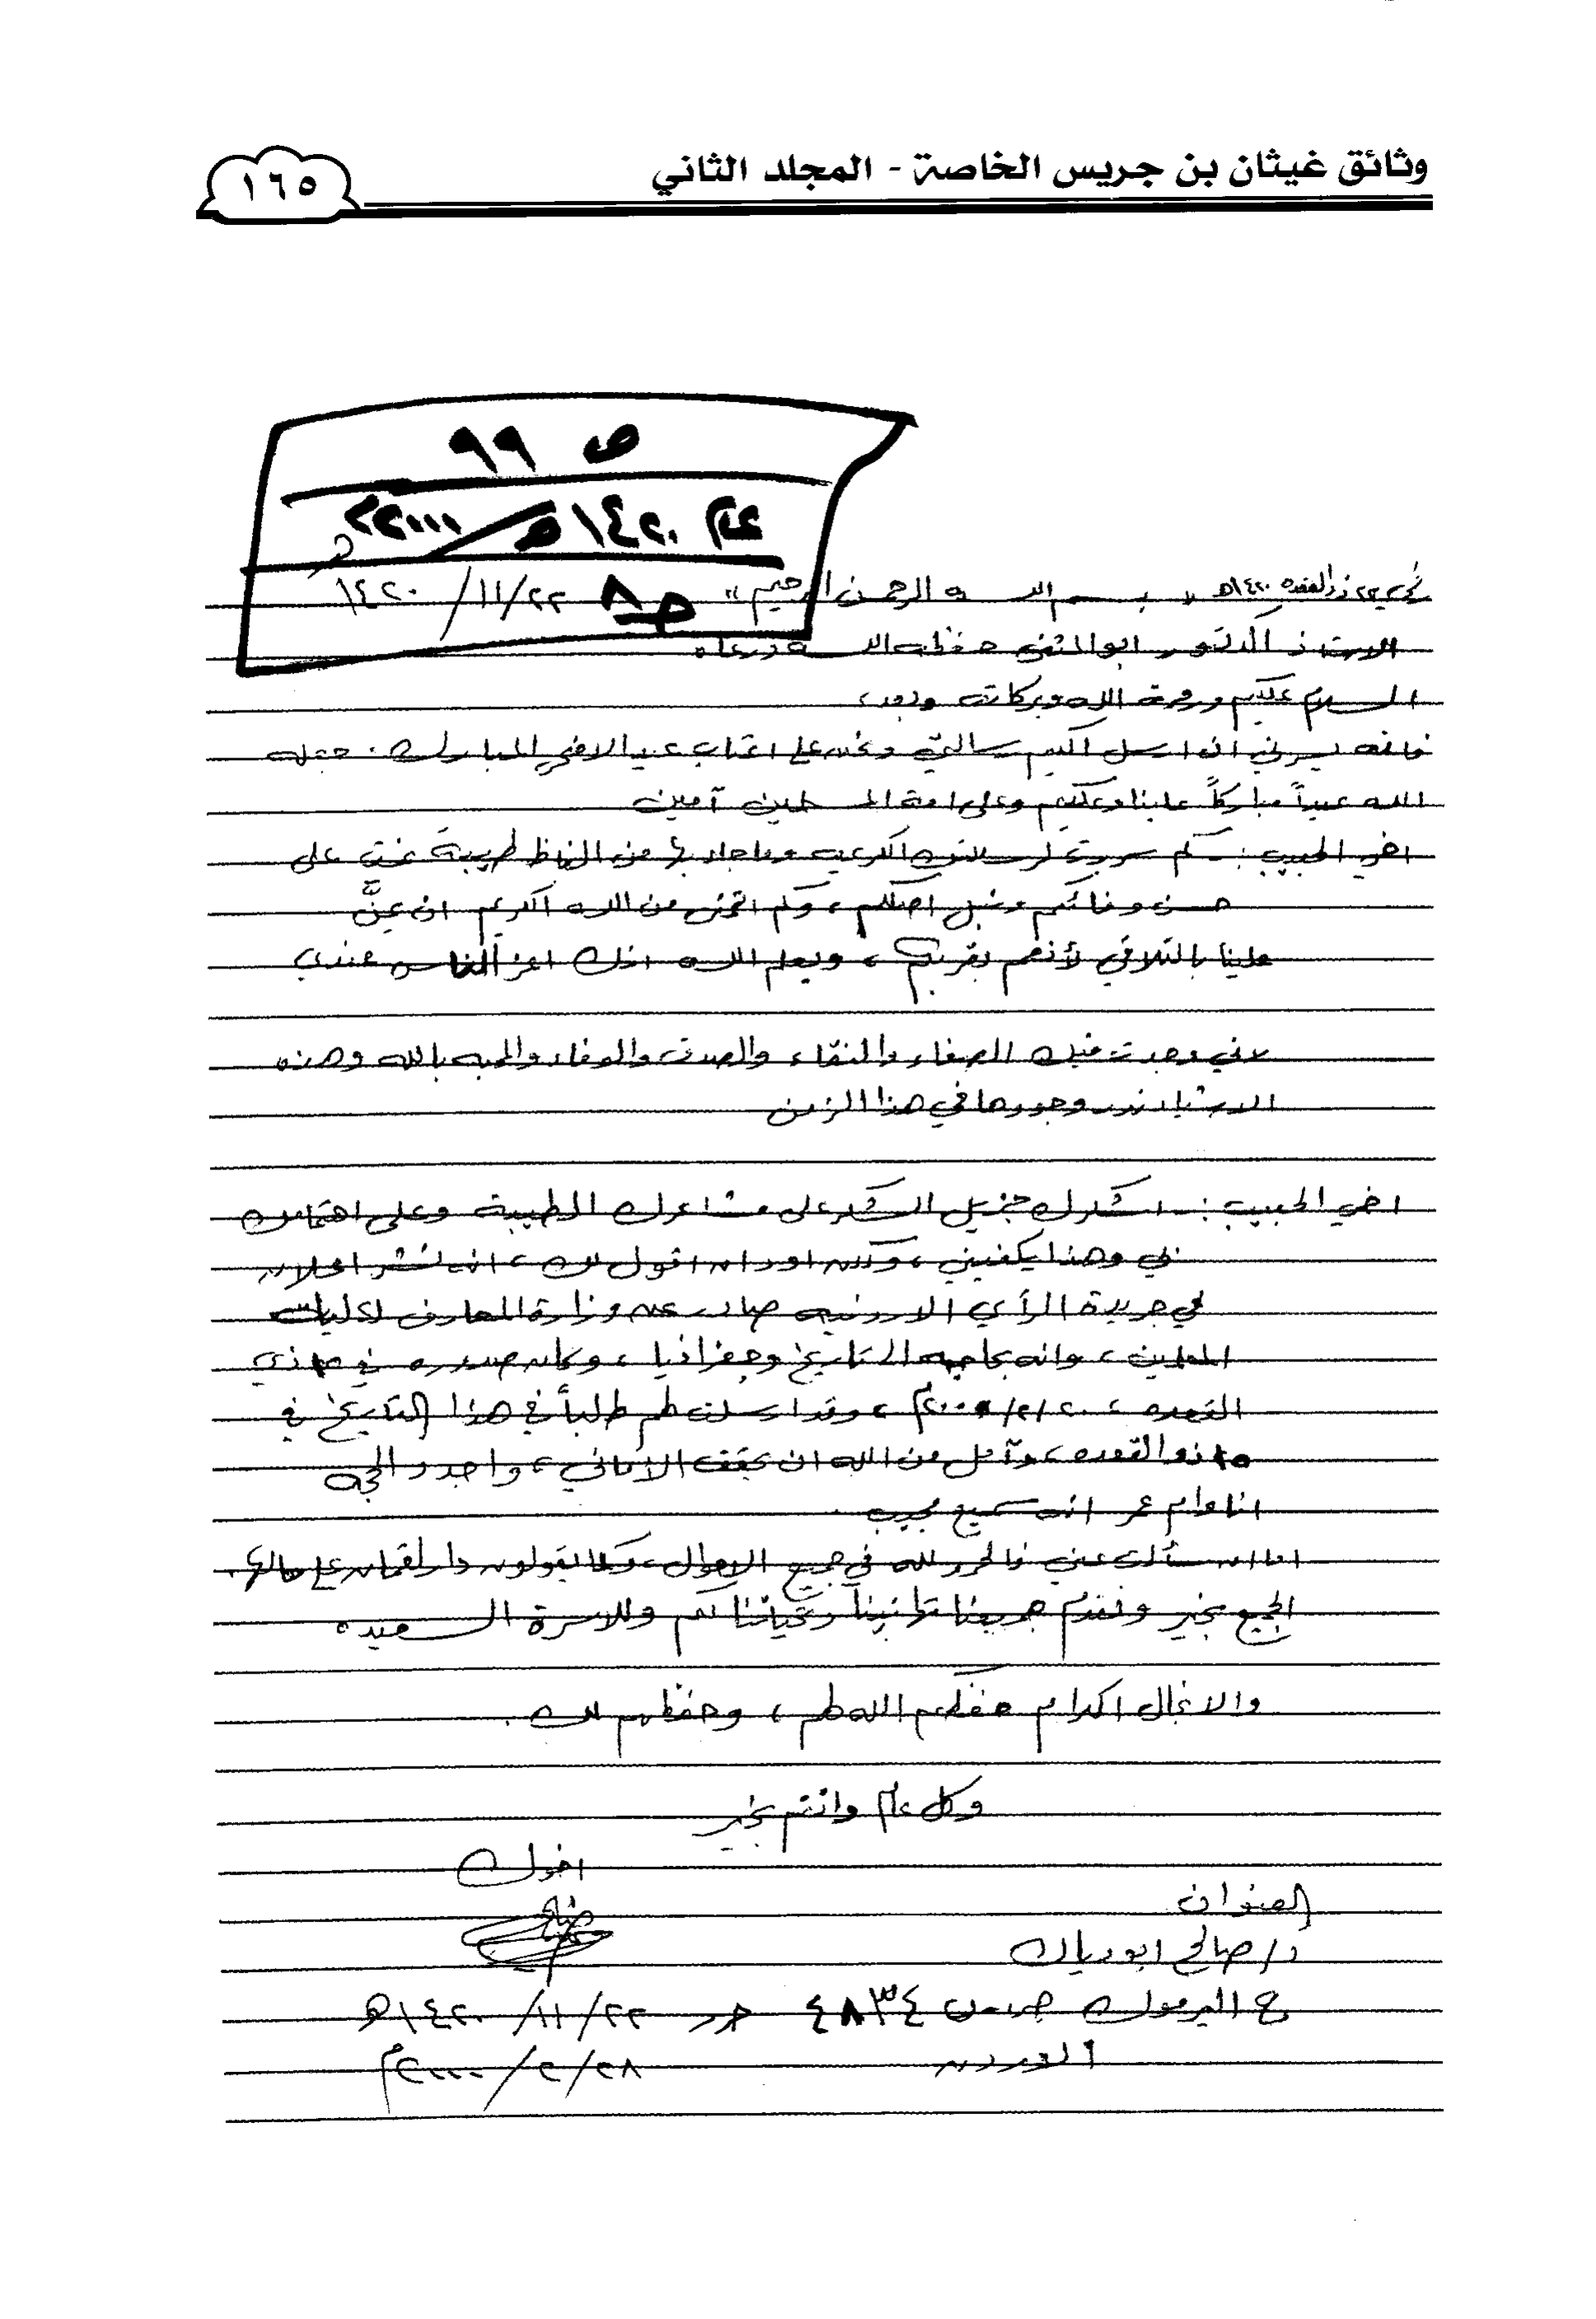 وثائق غيثان بن جريس الخاصة - المجلد الثاني
١٦٥
ص ٩٩
عام ١٤٢٠هـ / ٢٠٠٠م
ص ٨
١٤٢٠/١١/٢٢هـ
في ٢٢ ذو القعده ١٤٢٠هـ " بسم الله الرحمن الرحيم "
الاستاذ الدكتور ابو المثنى حفظه الله ورعاه
السلام عليكم ورحمة الله وبركاته وبعد،
فانه يسرني ان ارسل اليكم رسالتي ونحن على اعتاب عيد الاضحى المبارك. جعله
الله عيداً مباركاً علينا وعليكم وعلى امة المسلمين آمين
اخي الحبيب :- كم سررت لرسالتك الكريمه وما جاء بها من الفاظ طيبة تنم على
حسن وفائكم ونبل اصلكم، وكم اتمنى من الله الكريم ان يمنَّ
علينا بالتلاقي لأنعم بقربكم، ويعلم الله انك اعز الناس عندي
لاني وجدت فيك الصفاء والنقاء والصدق والوفاء والمحبه بالله وهذه
الاشياء ندر وجودها في هذا الزمن
اخي الحبيب :- اشكرك جزيل الشكر على مشاعرك الطيبة وعلى اهتمامك
بي وهذا يكفيني، ولكن اود ان اقول لك، انه نشر اعلان
في جريدة الرأي الاردنيه صادر عن وزارة المعارف لكليات
المعلمين، وانه بحاجه الى تاريخ وجغرافيا، وكان صدوره في ذي
القعده، ٢٠/٢/٢٠٠٠م، وقد ارسلت لهم طلباً في هذا التاريخ في
١٥ ذو القعده، وآمل من الله ان يحقق الأماني، واجدد الحجه
انا وام عمر انه سميع مجيب.
اما ان سألت عني فالحمد لله في جميع الاحوال، وكما يقولون دار لقمان على حالها.
الجميع بخير ونقدم جميعنا تهانينا وتحياتنا لكم وللاسرة السعيده
والانجال الكرام حفظكم الله لهم، وحفظهم لك.
وكل عام وانتم بخير
اخوك
صالح
العنوان
د/ صالح ابو دياك
ج اليرموك ص.ب ٤٨٣٤ حرر ٢٢/١١/١٤٢٠هـ
الاردن ٢٨/٢/٢٠٠٠م